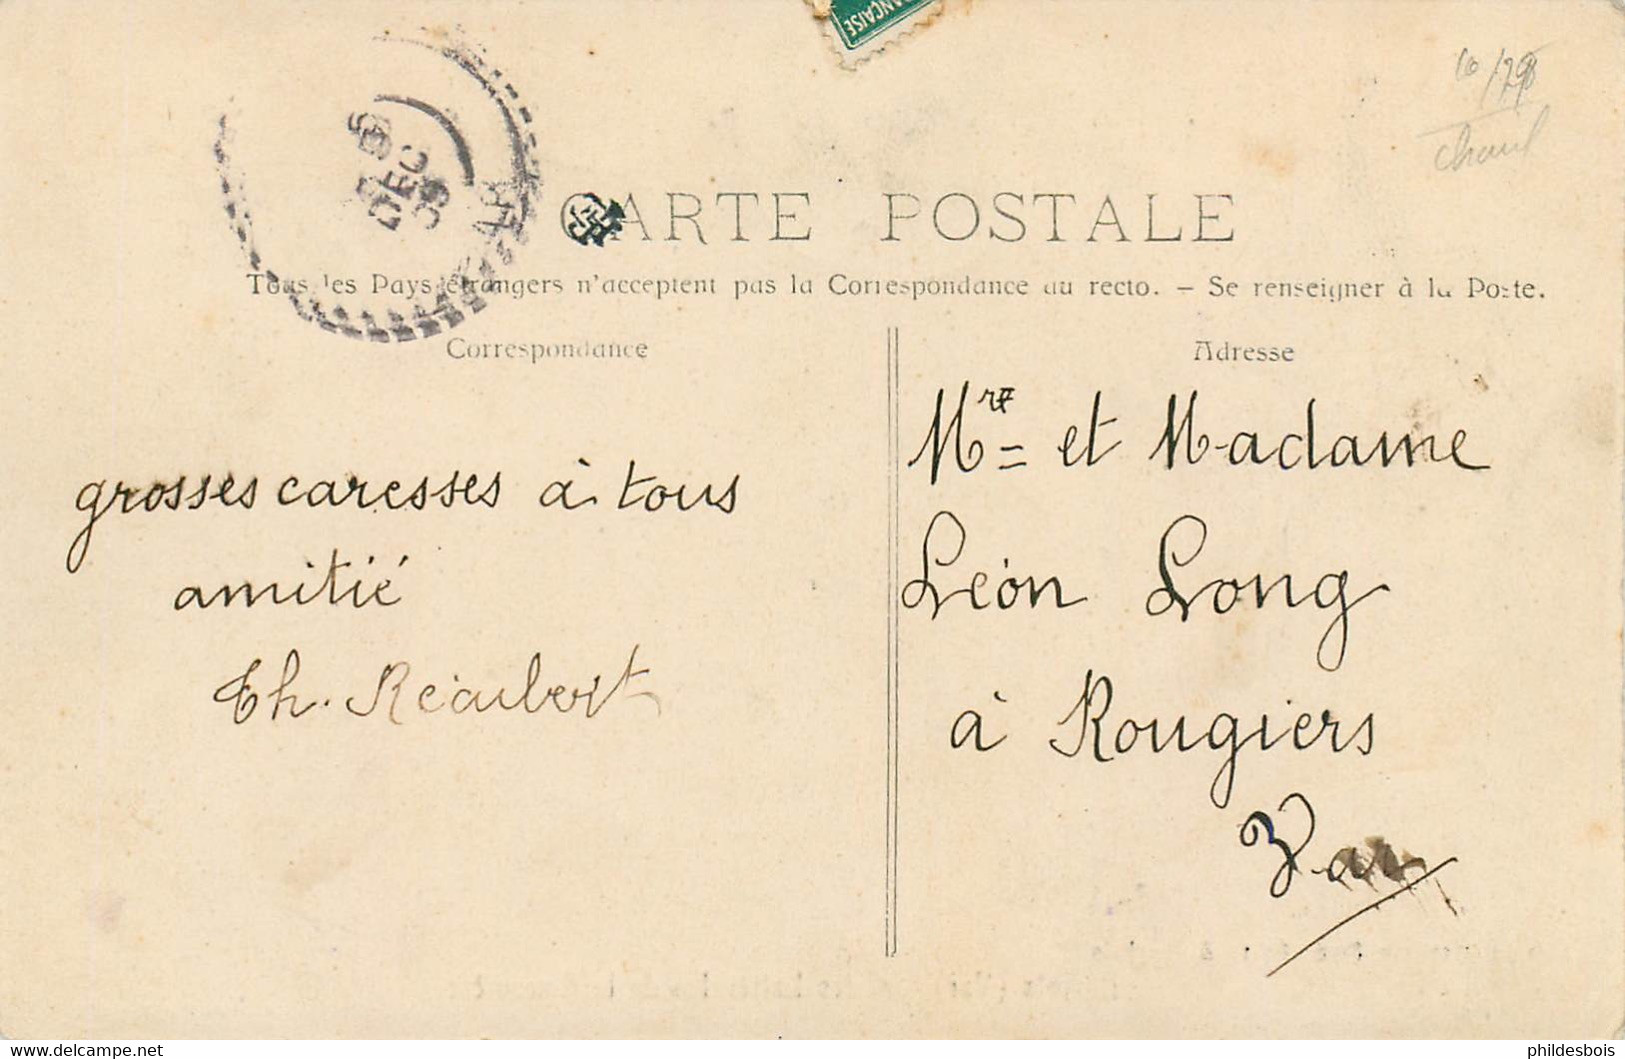 ANÇAISE
10/79
DEC
09
CARTE POSTALE
Tous les Pays étrangers n'acceptent pas la Correspondance au recto. – Se renseigner à la Poste.
Correspondance
grosses caresses à tous
amitié
Th. Réaubert
Adresse
Mr et Madame
Léon Long
à Rougiers
Var
www.delcampe.net
phildesbois